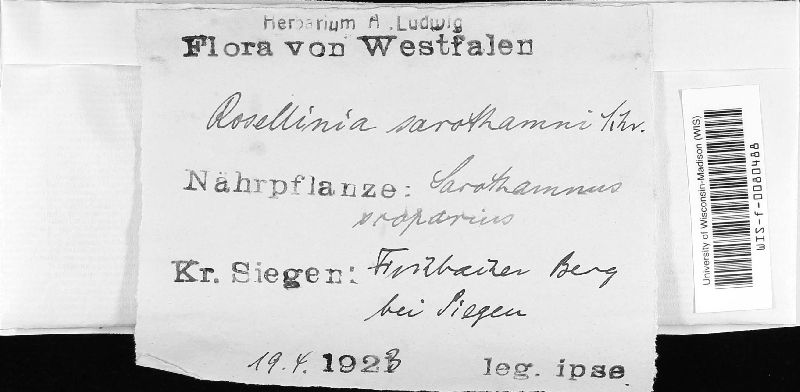 Herbarium A. Ludwig
Flora von Westfalen
Rosellinia sarothamni
Nährpflanze: Sarothamnus
scoparius
Kr. Siegen: Berg
bei Siegen
19. 4. 1923 leg. ipse
University of Wisconsin-Madison (WIS)
WIS-f-0080488